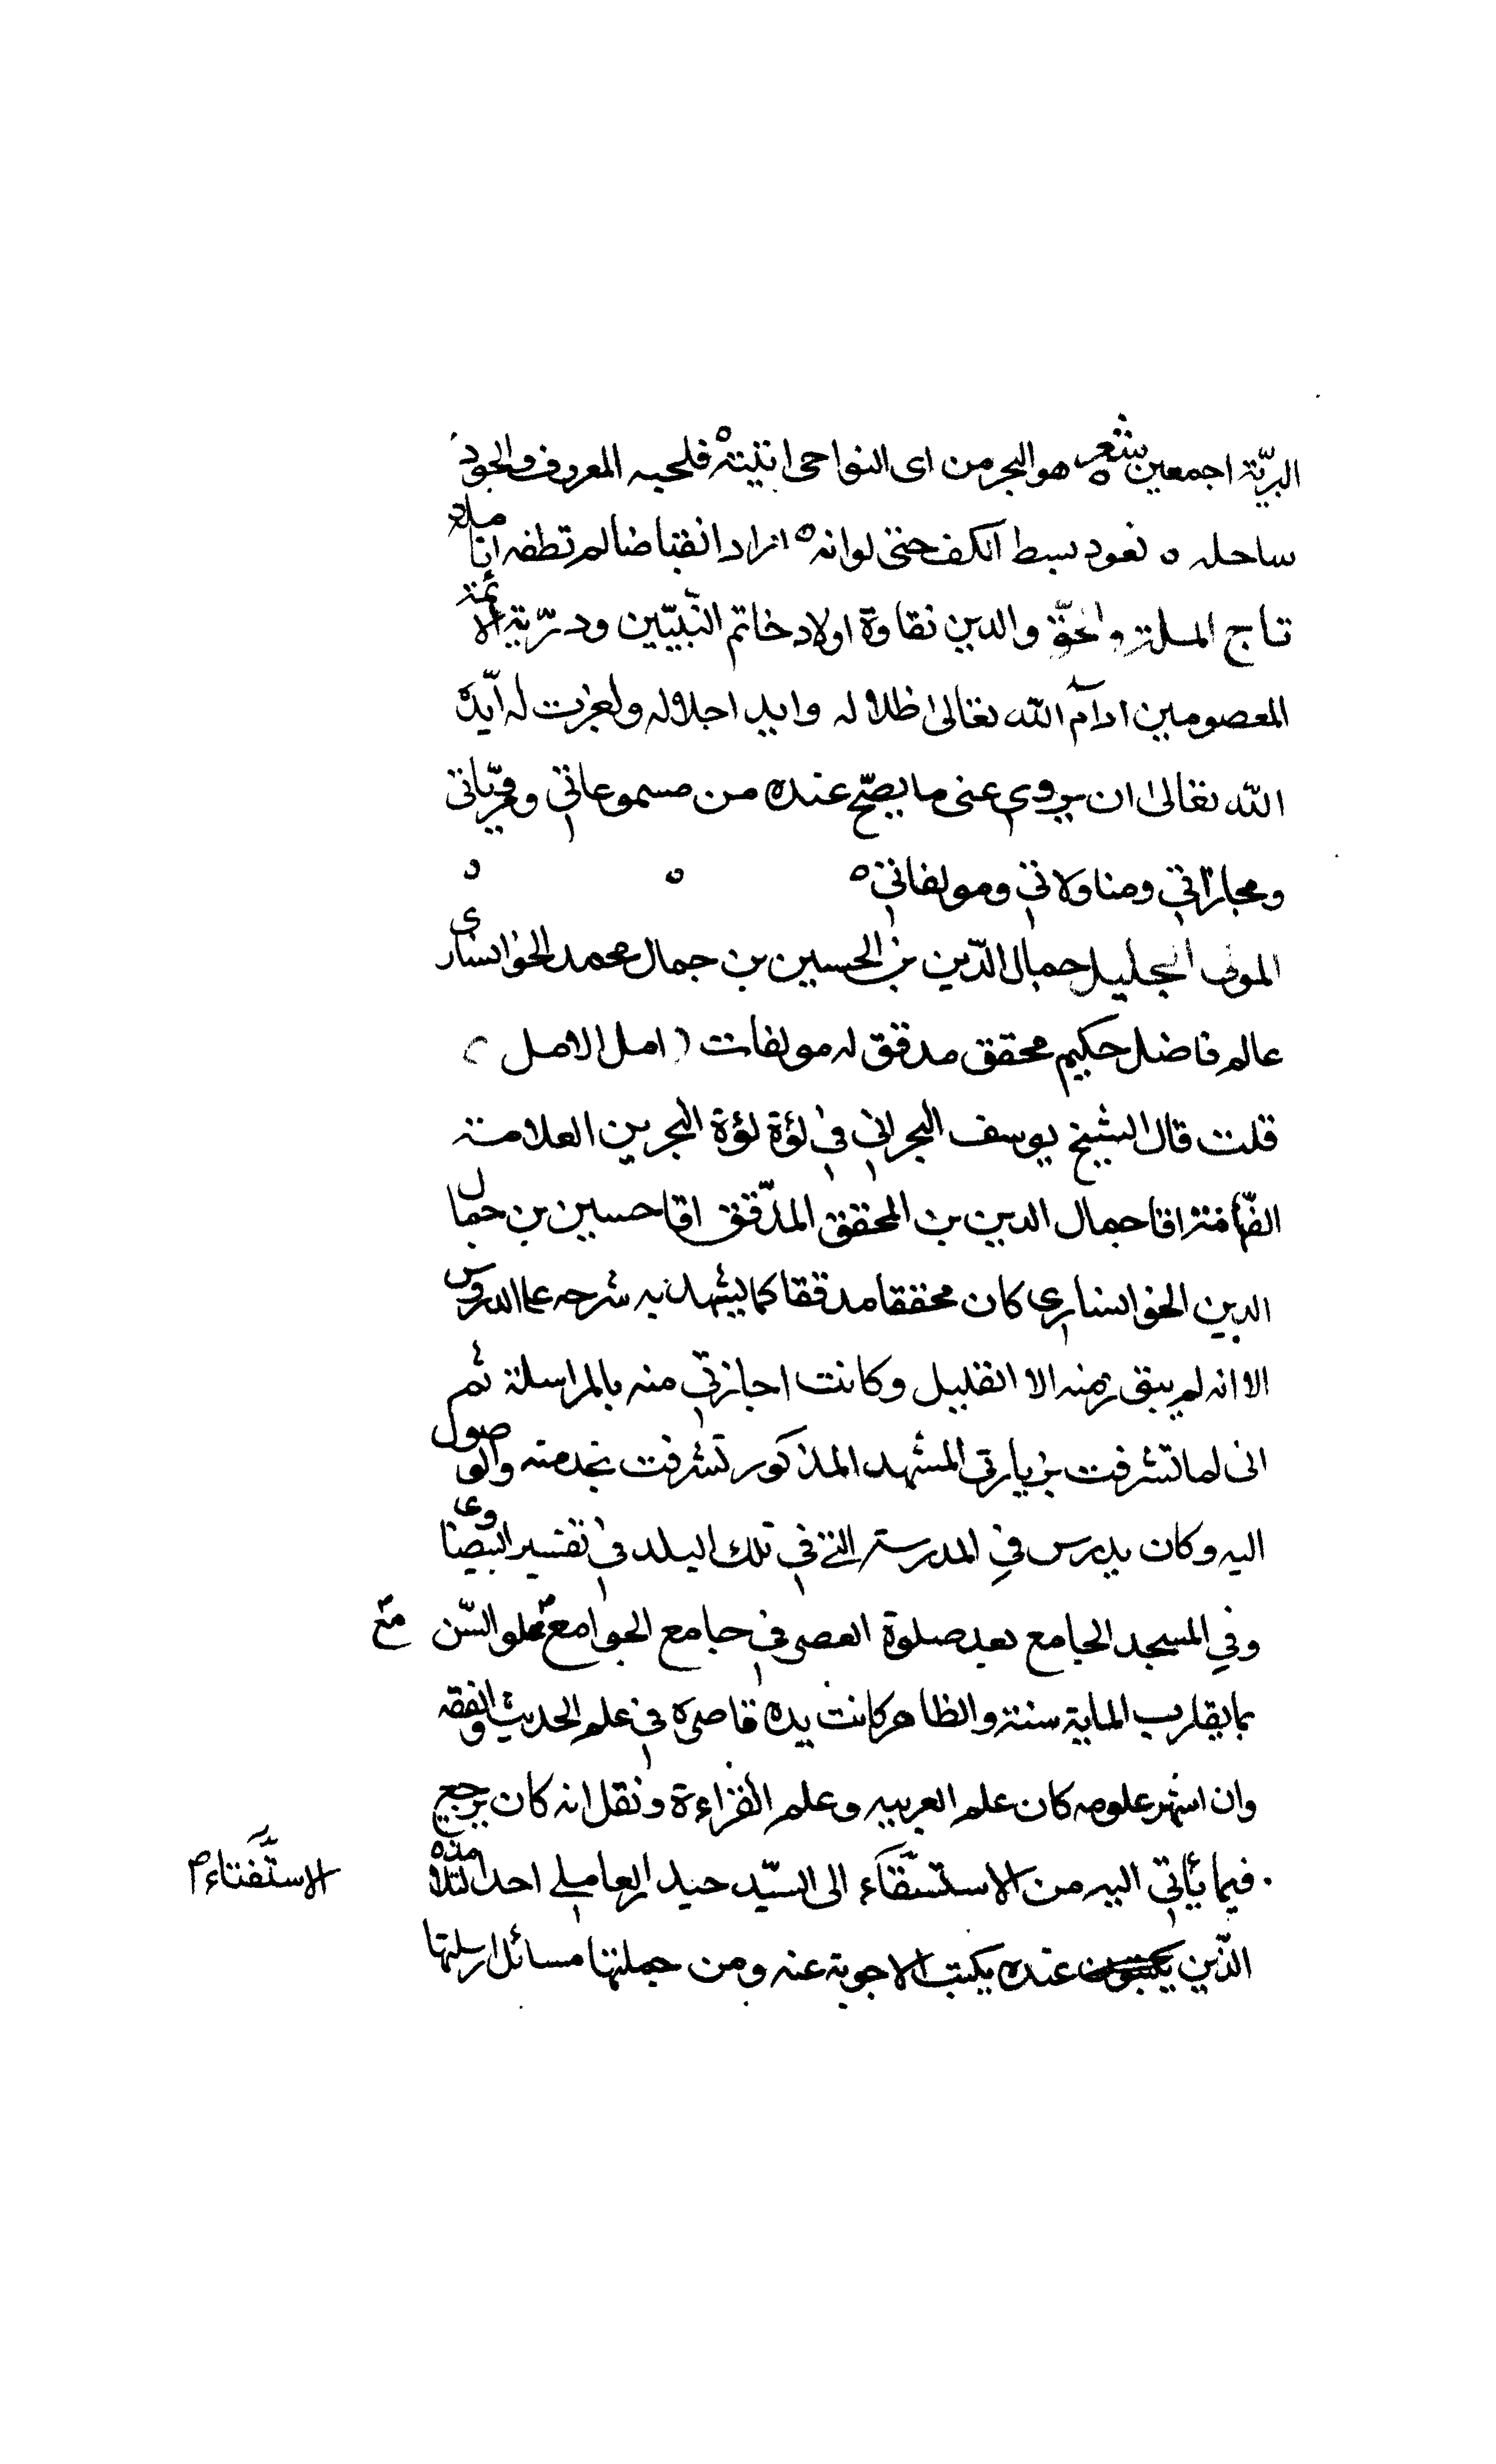 البريّة اجمعين شعر هو البحر من اى النواحى اتيته ه فلجيه المعروف والجود
ساحله ه تعود بسط الكف حتى لوانه ه اراد انقباضا لم تطفه انامله
تاج الملة والحقّ والدين نقاوة اولاد خاتم النّبيّين ودرّية الائمة
المعصومين ادآم الله تعالى اظلاله وابد اجلاله ولعزت له ايّده
الله تعالى ان يروى عنى ما يصّح عنده من مسموعاتى ومقريّاتى
ومجازاتى ومناولاتى ومولفاتى ه ه ه
المولى الجليل جمال الدّين بن الحسين بن جمال محمد الخوانسارى
عالم فاضل حكيم محقق مدقق له مولفات (امل الامل)
قلت قال الشيخ يوسف البحرانى فى لؤة لؤة البحرين العلامة
الفهّامة اقا جمال الدين بن المحقق المدّقق اقا حسين بن جمال
الدين الخوانسارى كان محققا مدققا كما يشهد به شرحه على الدروس
الا انه لم يبق زمنه الا القليل وكانت اجازتى منه بالمراسلة ثم
انى لما تشرفت بزيارتى المشهد المذكور تشرفت بخدمته والوصول
اليه وكان يدرس فى المدرسة التى فى تلك البلد فى تفسير البيضاوى
وفى المسجد الجامع بعد صلوة العصر فى جامع الجوامع مع علو السّن مع
بما يقارب الماية سنة والظاهر كانت يده قاصرة فى علم الحديث والفقه
وان اشهر علومه كان علم العربيه وعلم القراءة ونقل انه كان يرجع
فيما يأتى اليه من الاستسّقآء الى السيّد حيدر العاملى احد تلامذه الاستّفتاء م
الذّين يكتبون عنده يكتب الاجوبة عنه ومن جملتها مسائل ارسلتها